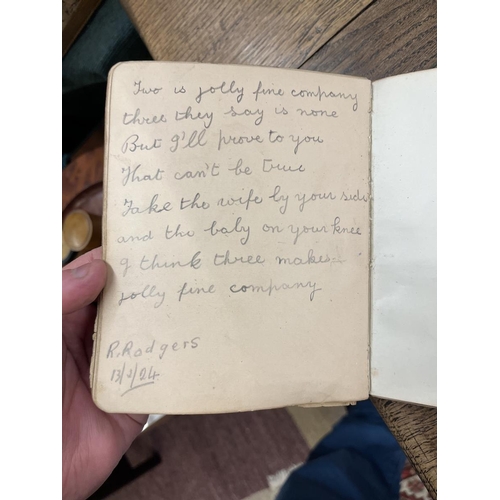 Two is jolly fine company
three they say is none
But I'll prove to you
That can't be true
Take the wife by your side
and the baby on your knee
I think three makes
jolly fine company
R. Rodgers
13/2/24